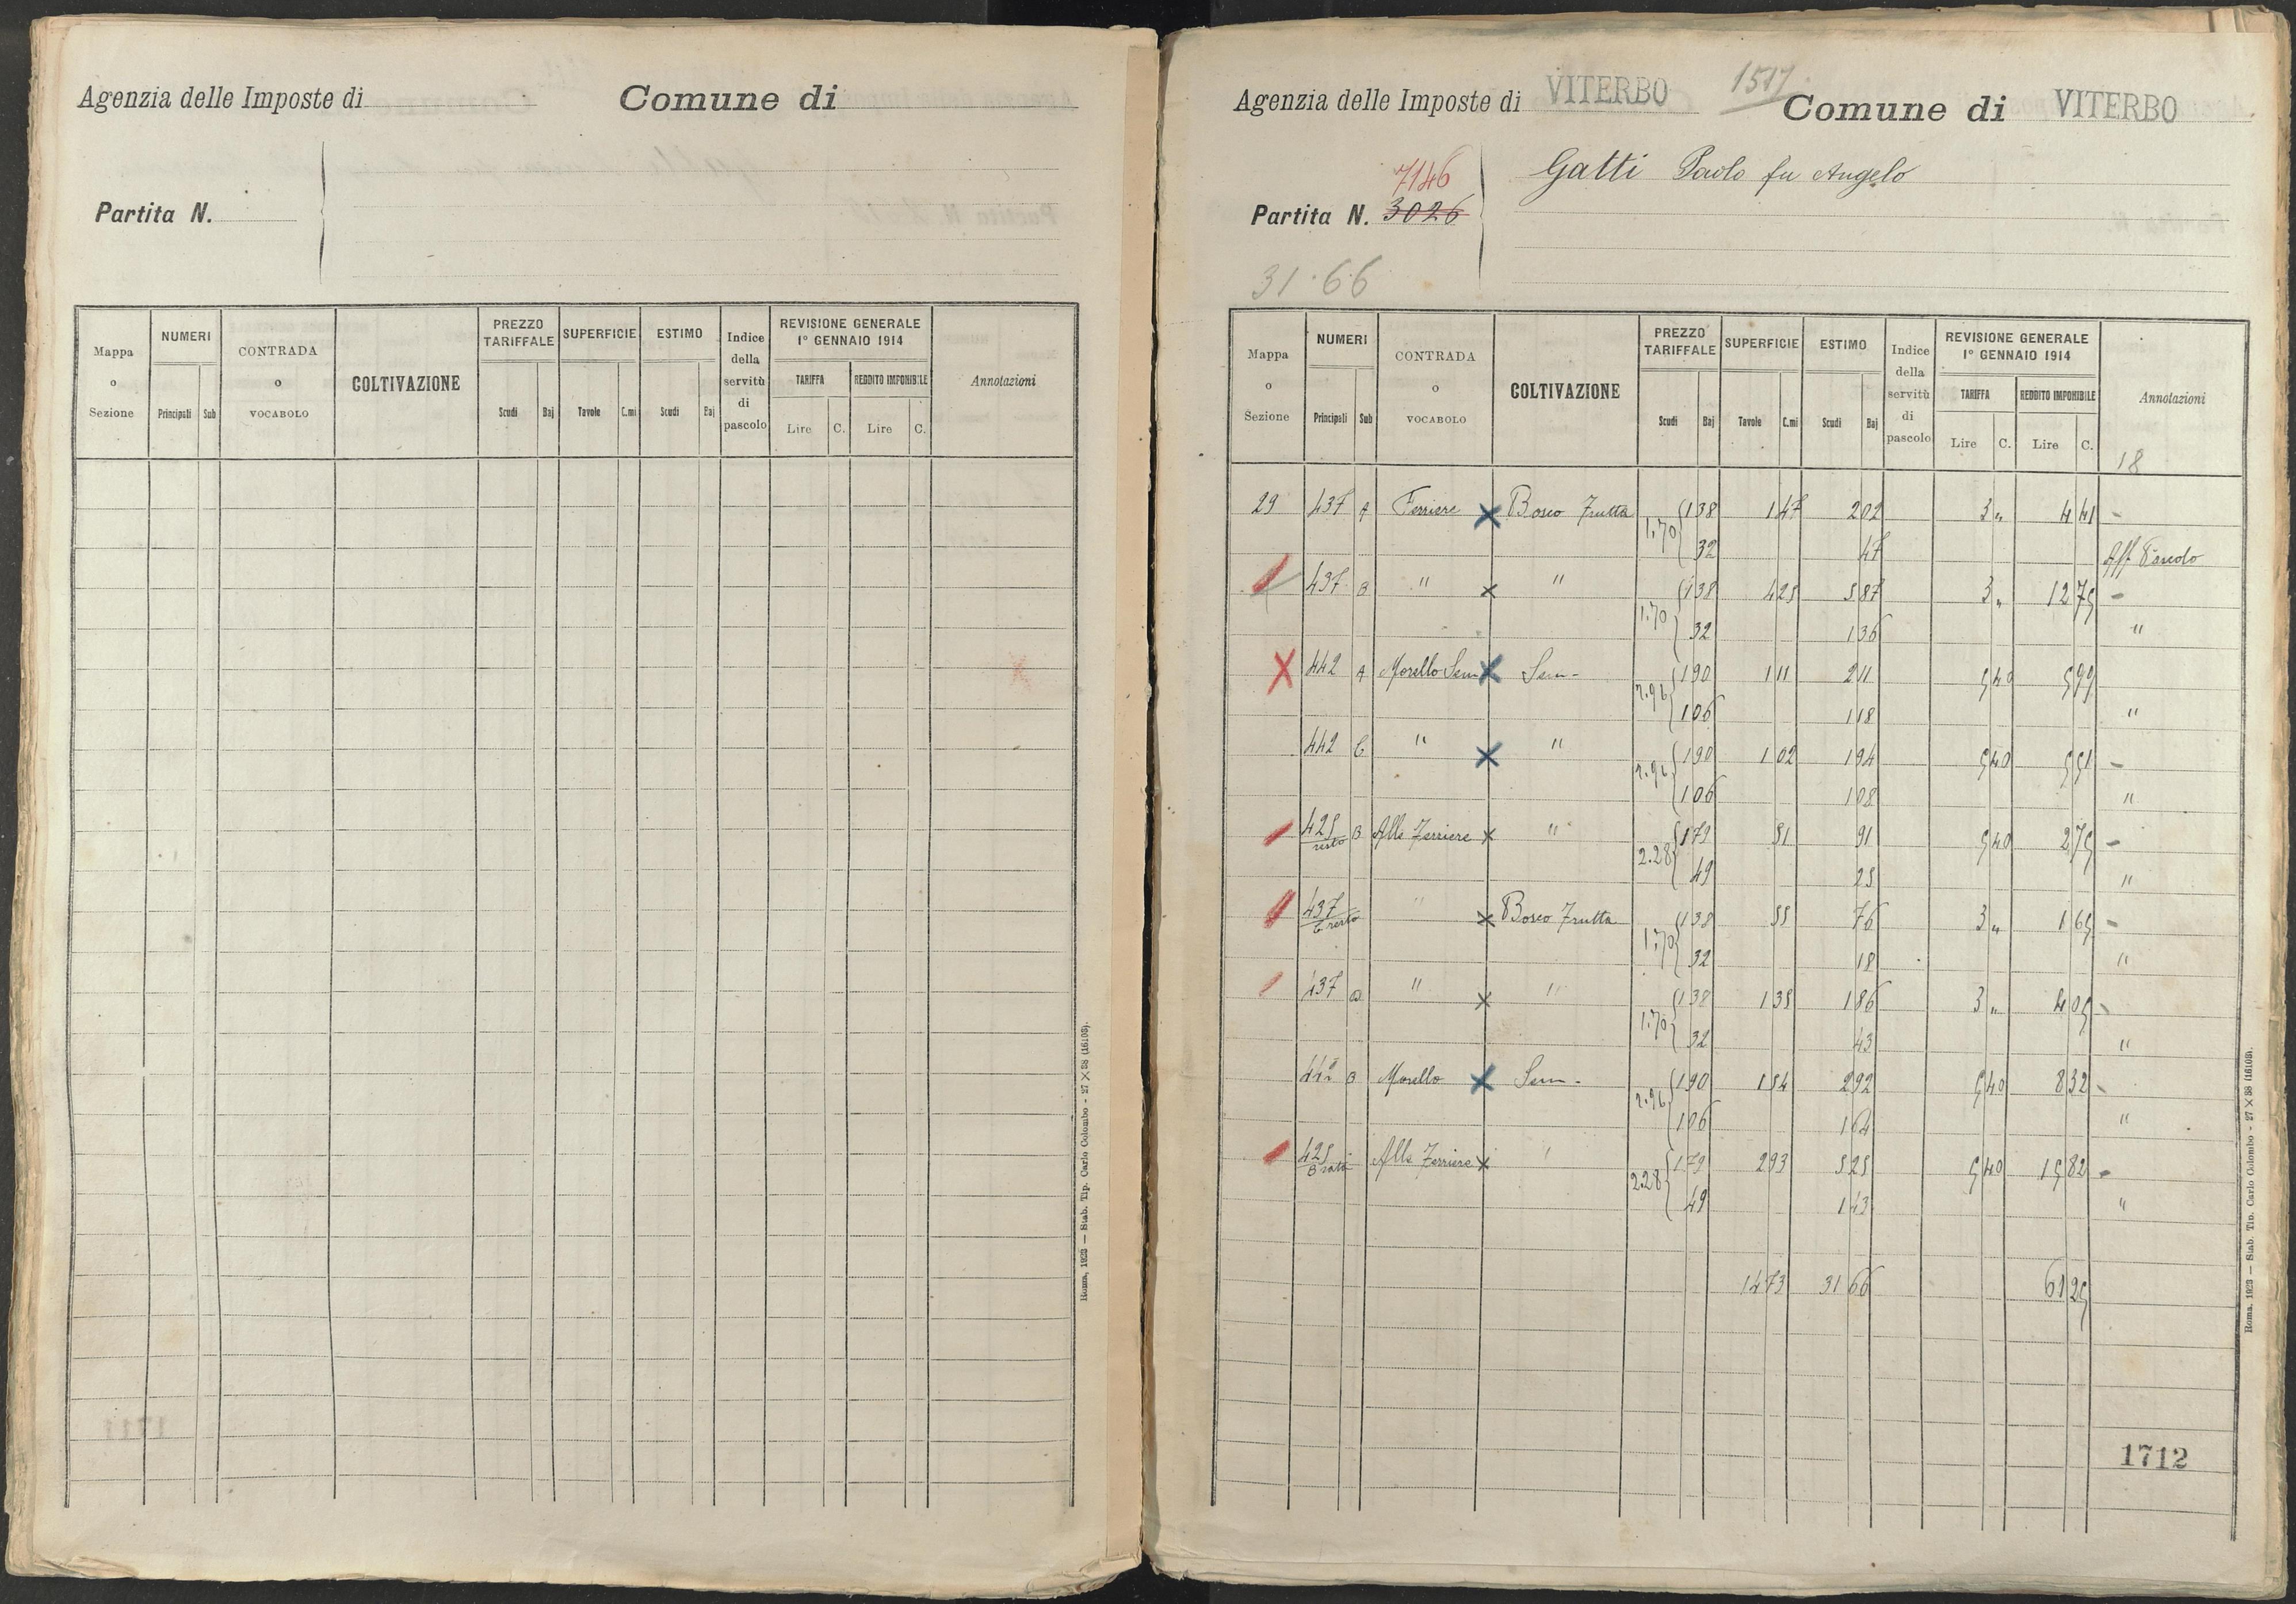 Agenzia delle Imposte di
Comune di
Partita N.
Mappa o Sezione
NUMERI
Principali Sub
CONTRADA o VOCABOLO
COLTIVAZIONE
PREZZO TARIFFALE
Scudi Baj
SUPERFICIE
Tavole C.mi
ESTIMO
Scudi Baj
Indice della servitù di pascolo
REVISIONE GENERALE
1º GENNAIO 1914
TARIFFA
Lire C.
REDDITO IMPONIBILE
Lire C.
Annotazioni
Roma, 1923 — Stab. Tip. Carlo Colombo - 27 X 38 (16103).
Agenzia delle Imposte di VITERBO
1517
Comune di VITERBO
7146
Partita N. 3026
Gatti Paolo fu Angelo
31.66
Mappa o Sezione
NUMERI
Principali Sub
CONTRADA o VOCABOLO
COLTIVAZIONE
PREZZO TARIFFALE
Scudi Baj
SUPERFICIE
Tavole C.mi
ESTIMO
Scudi Baj
Indice della servitù di pascolo
REVISIONE GENERALE
1º GENNAIO 1914
TARIFFA
Lire C.
REDDITO IMPONIBILE
Lire C.
Annotazioni
18
29 437 A Ferriere X Bosco Frutta 1.70 { 1 38 1 47 2 02 3 " 4 41 -
32 47 Aff Pascolo
437 B " x " 1.70 { 1 38 4 25 5 87 3 " 12 75 -
32 1 36 "
X 442 A Morello Sem X Sem- 2.96 { 1 90 1 11 2 11 5 40 5 99
1 06 1 18 "
442 C " X " 2.96 { 1 90 1 02 1 94 5 40 5 51 -
1 06 1 08 "
425 resto B Alle Ferriere x " 2.28 { 1 79 51 91 5 40 2 75 -
49 25 "
437 C resto " x Bosco Frutta 1.70 { 1 38 55 76 3 " 1 65 -
32 18 "
437 D " x " 1.70 { 1 38 1 35 1 86 3 " 4 05 -
32 43 "
442 B Morello X Sem- 2.96 { 1 90 1 54 2 92 5 40 8 32 -
1 06 1 64 "
425 B Alle Ferriere x " 2.28 { 1 79 2 93 5 25 5 40 15 82 -
49 1 43 "
14 73 31 66 61 25
1712
Roma, 1923 — Stab. Tip. Carlo Colombo - 27 X 38 (16103).